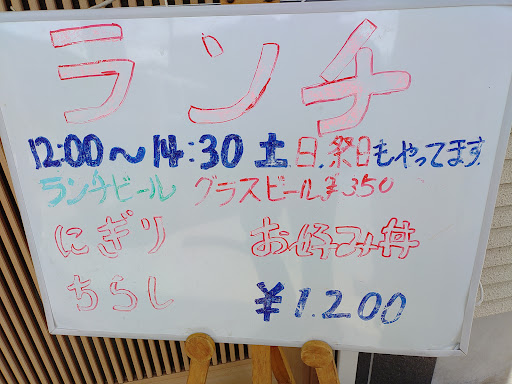 ランチ
12:00〜14:30 土日.祭日もやってます
ランチビール グラスビール¥350
にぎり お好み丼
ちらし ¥1.200